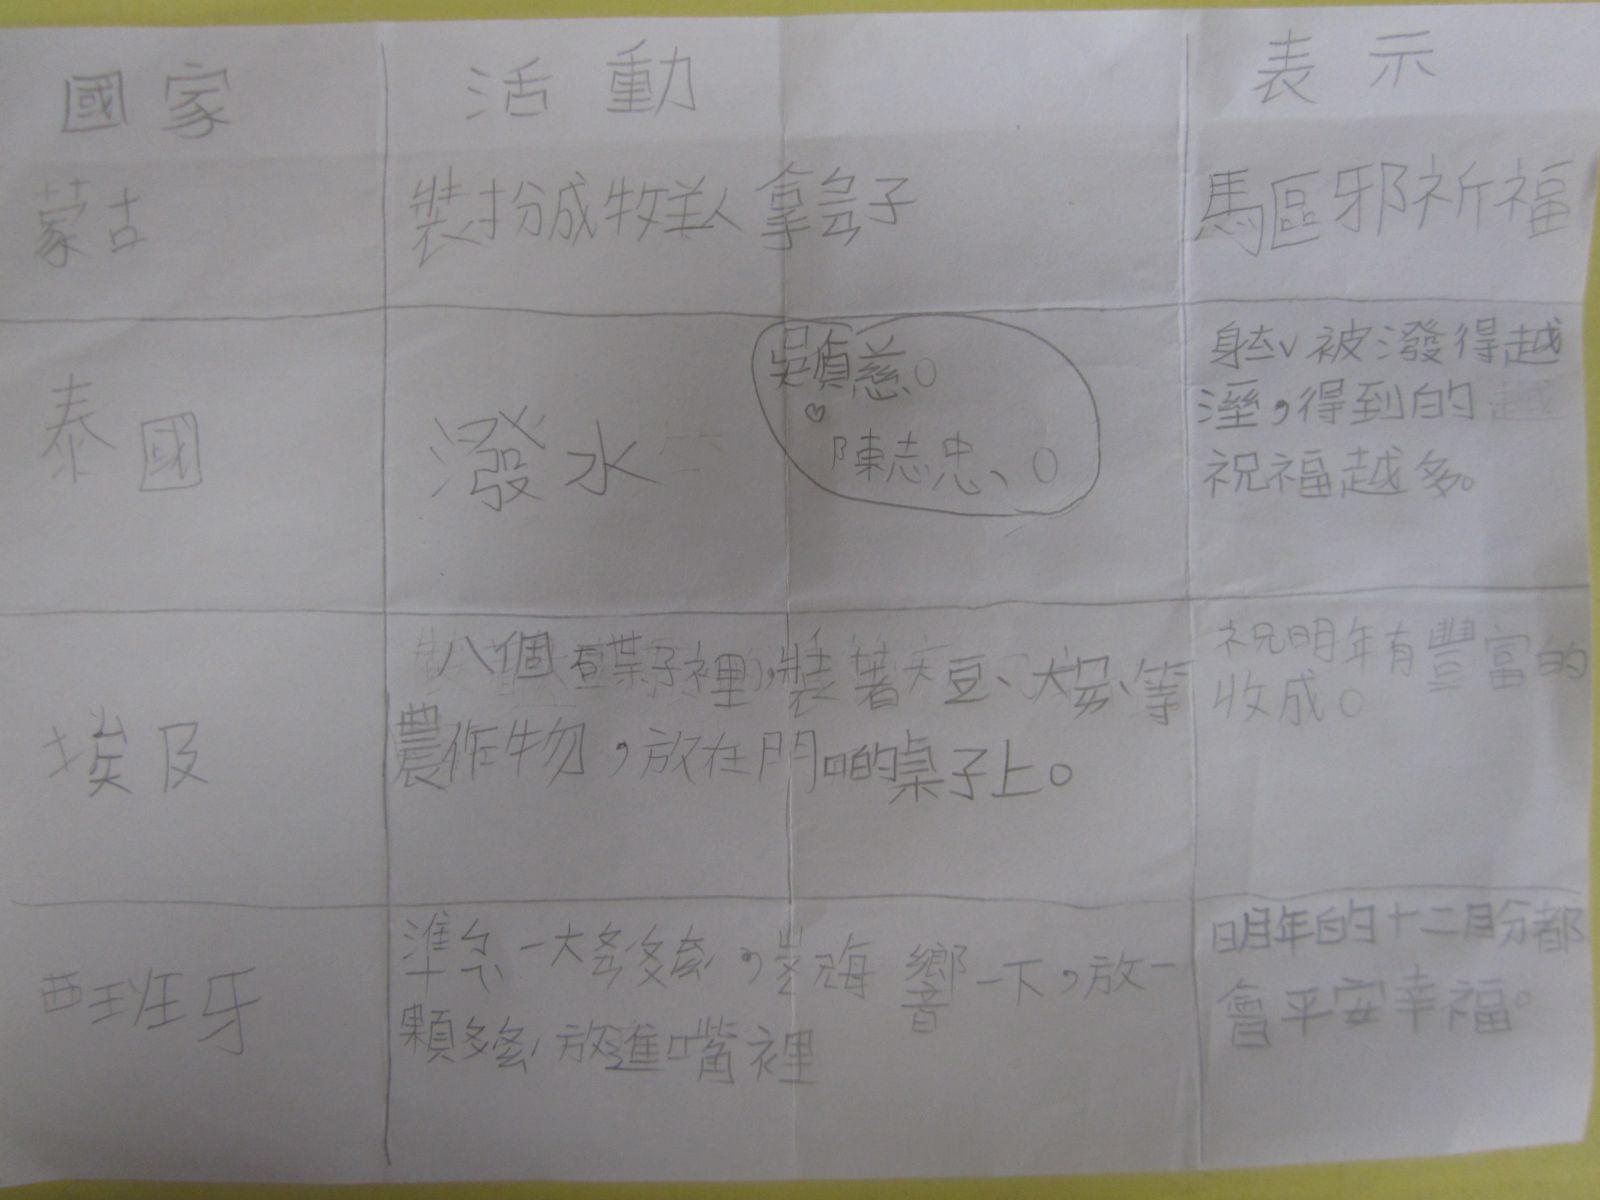 國家
活動
表示
蒙古
裝扮成牧羊人拿
子
驅邪祈福
泰國
潑水
吳貞慈。
陳志忠、〇
被潑得越
溼,得到的
祝福越多。
埃及
八個 葉子裡,裝著大豆、大 、等
農作物,放在門口的桌子上。
祝明年有豐富的
收成。
西班牙
準 一大 ,當 響一下,放一
顆 放進嘴裡
明年的十二月份都
會平安幸福。